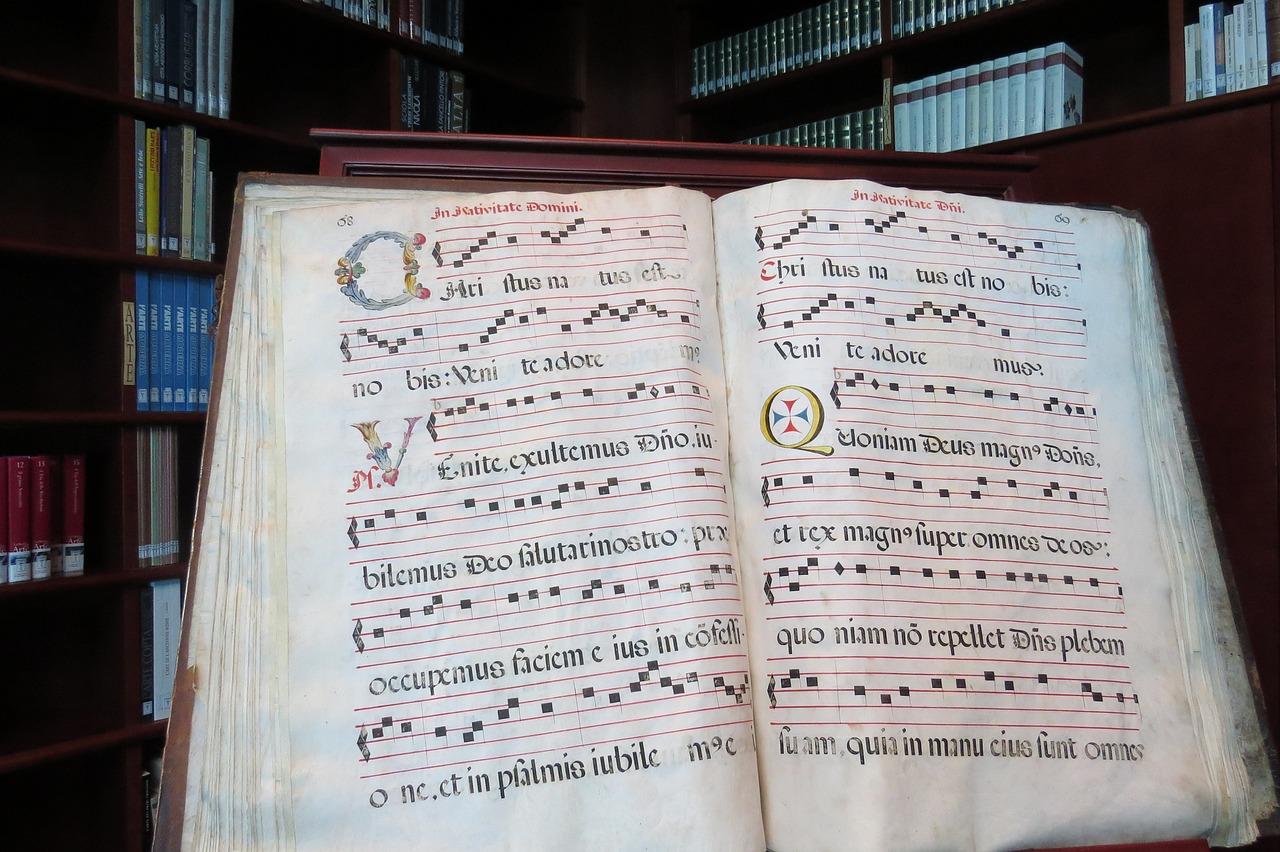 68
In Nativitate Domini.
CHri stus na tus est
no bis: Veni te adore m9
Ps. VEnite, exultemus Dño, iu-
bilemus Deo salutarinostro: præ
occupemus faciem e ius in cõfessi-
o ne, et in psalmis iubile m9 e
In Nativitate Dñi.
69
Chri stus na tus est no bis:
Veni te adore mus.
QUoniam Deus magn9 Doñs,
et rex magn9 super omnes deos:
quo niam nõ repellet Dñs plebem
suam, quia in manu eius sunt omnes
ARTE
L'ARTE
L'ARTE
L'ARTE
L'ARTE
L'ARTE